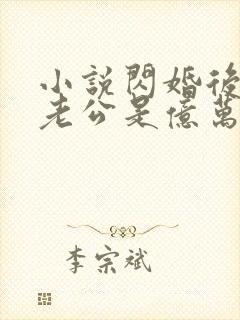 小説閃婚後
老公是億萬
李宗斌